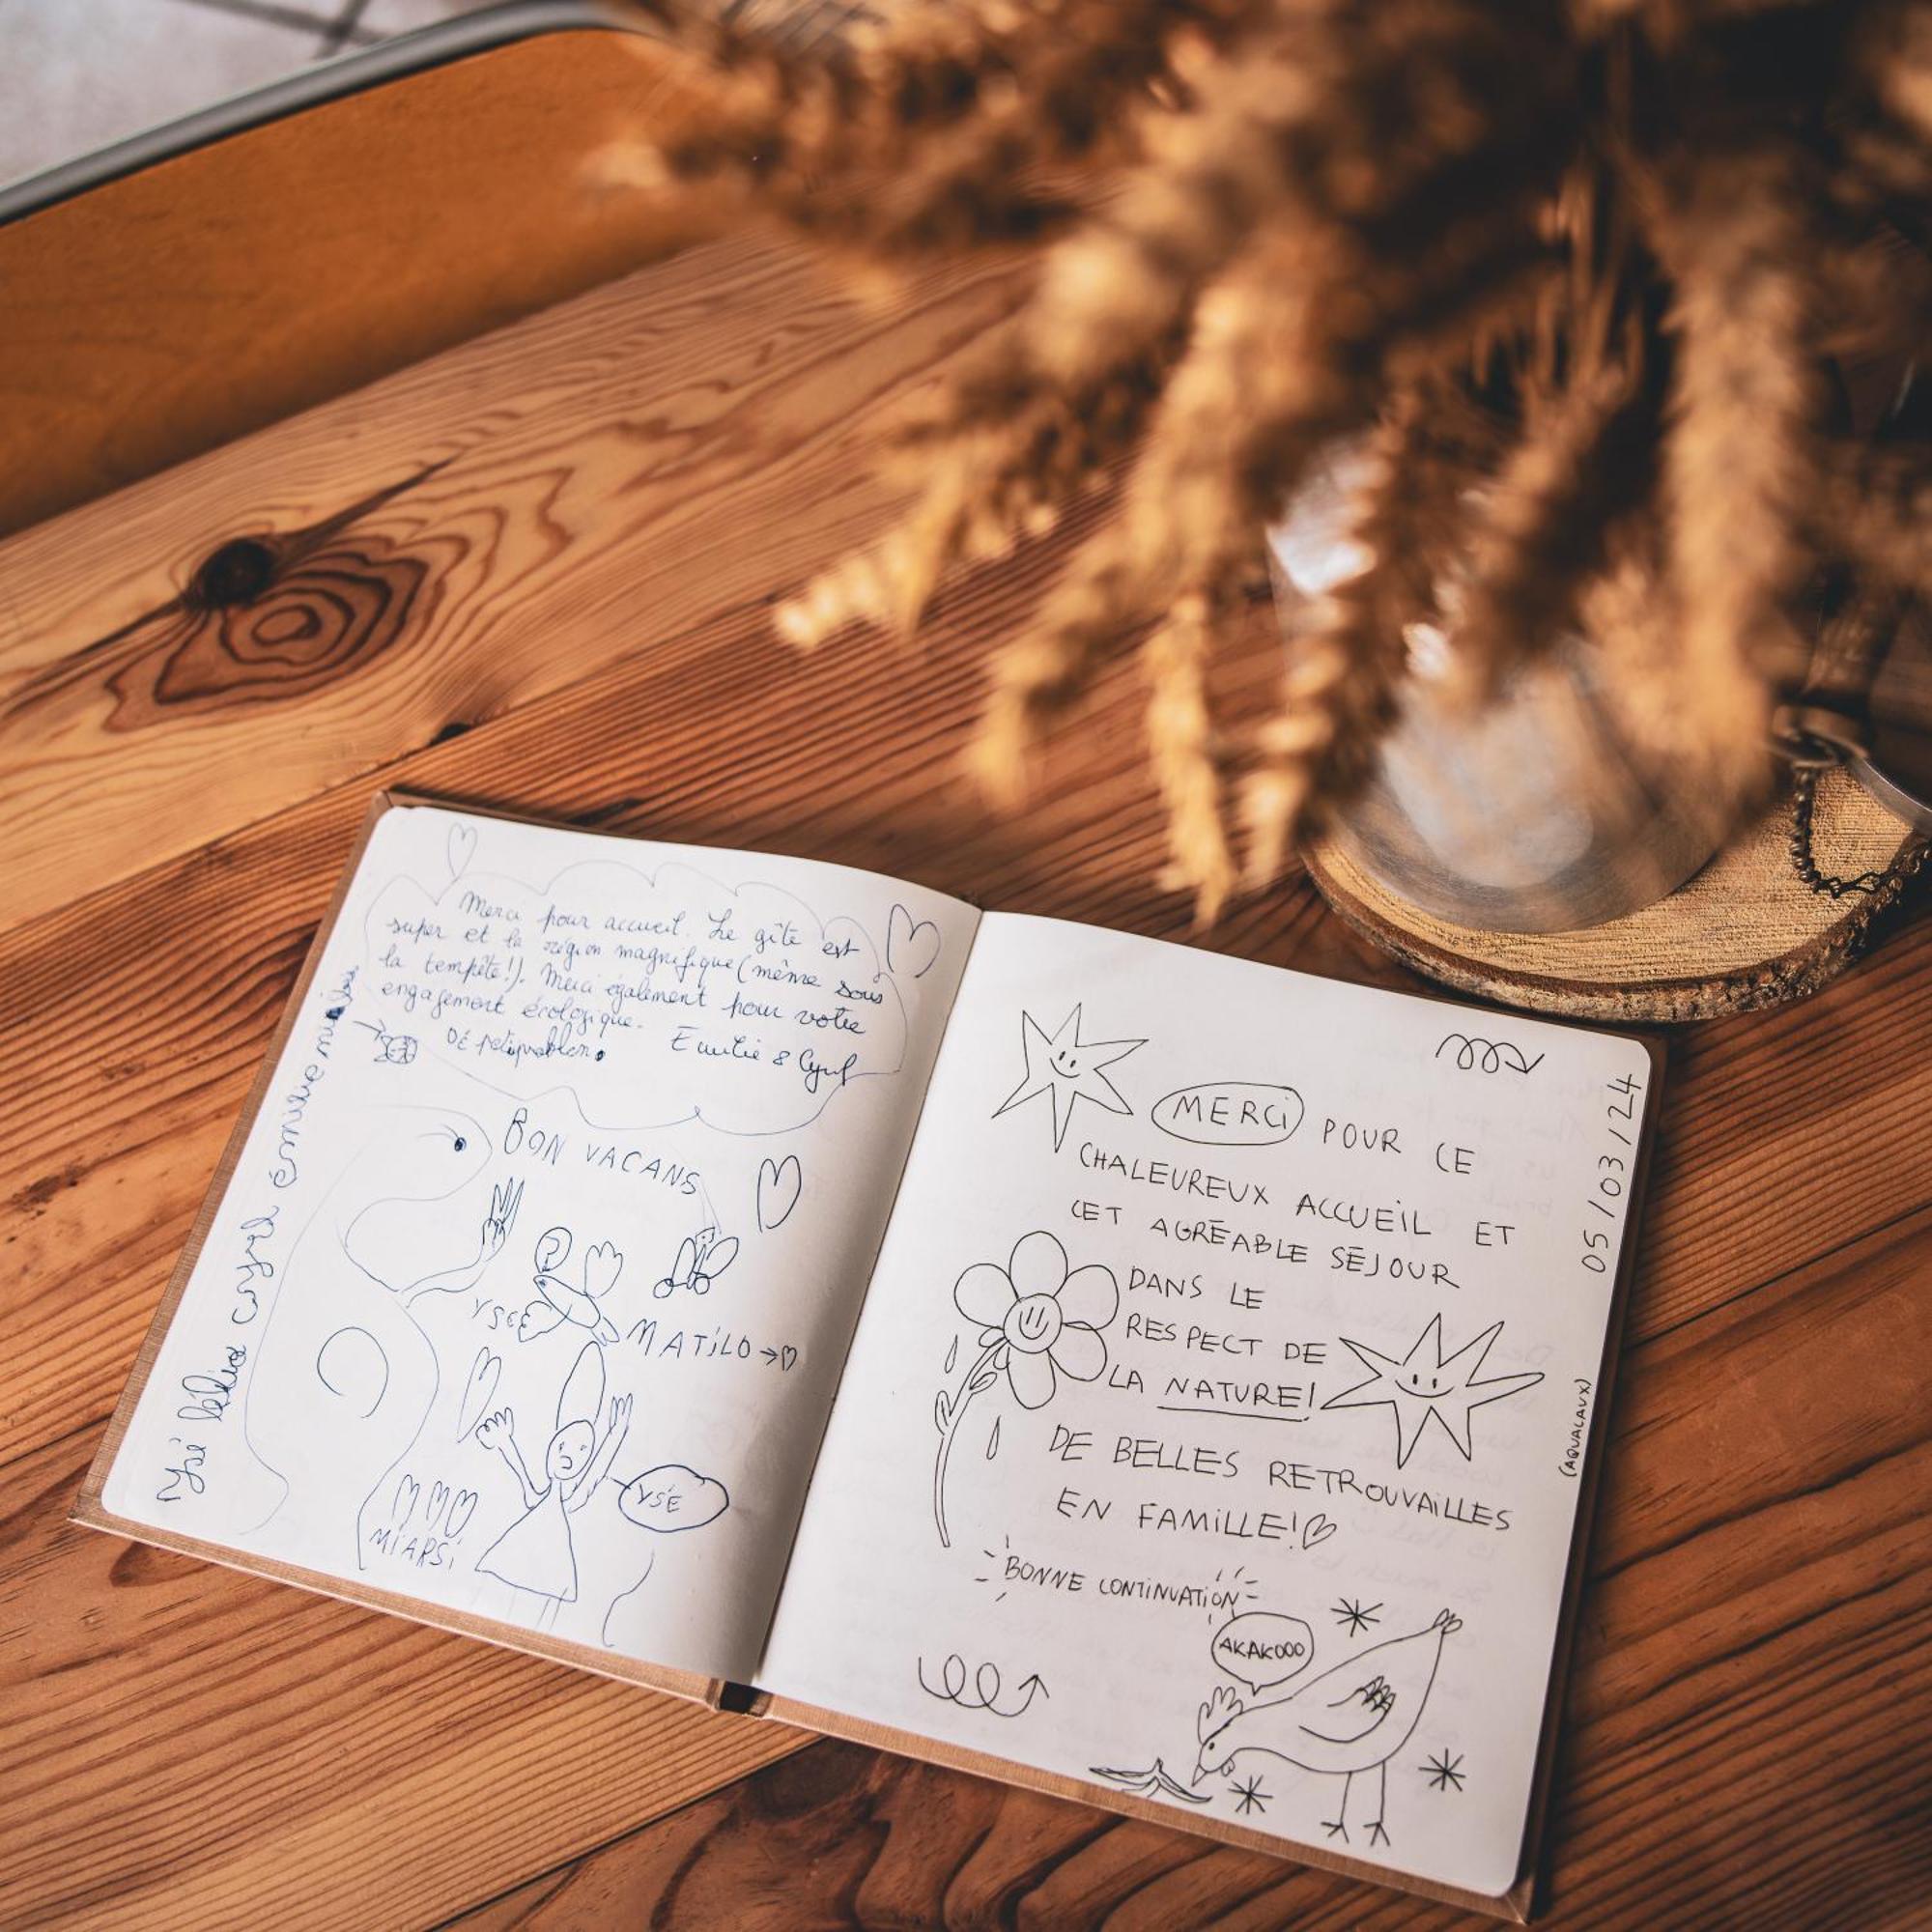 Merci pour accueil. Le gîte est
super et la région magnifique (même sous
la tempête!). Merci également pour votre
engagement écologique.
Emilie & Cyril
BON VACANS
YSEE
MATILO →
YSÉ
MiARSi
Ysé lélio cyril émilie
MERCi POUR CE
CHALEUREUX ACCUEiL ET
CET AGRÉABLE SÉJOUR
DANS LE
RESPECT DE
LA NATURE!
DE BELLES RETROUVAiLLES
EN FAMiLLE!
BONNE CONTiNUATiON
AKAKOOO
05/03/24
(AQUALAUX)